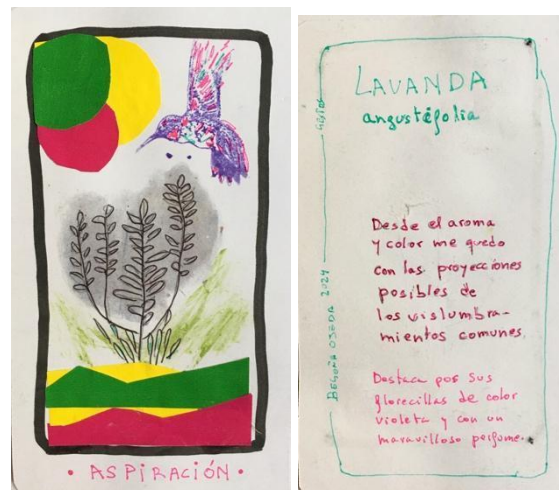 • ASPIRACIÓN •
LAVANDA
angustifolia
Desde el aroma
y color me quedo
con las proyecciones
posibles de
los vislumbra-
mientos comunes.
Destaca por sus
florecillas de color
violeta y con un
maravilloso perfume.
2024